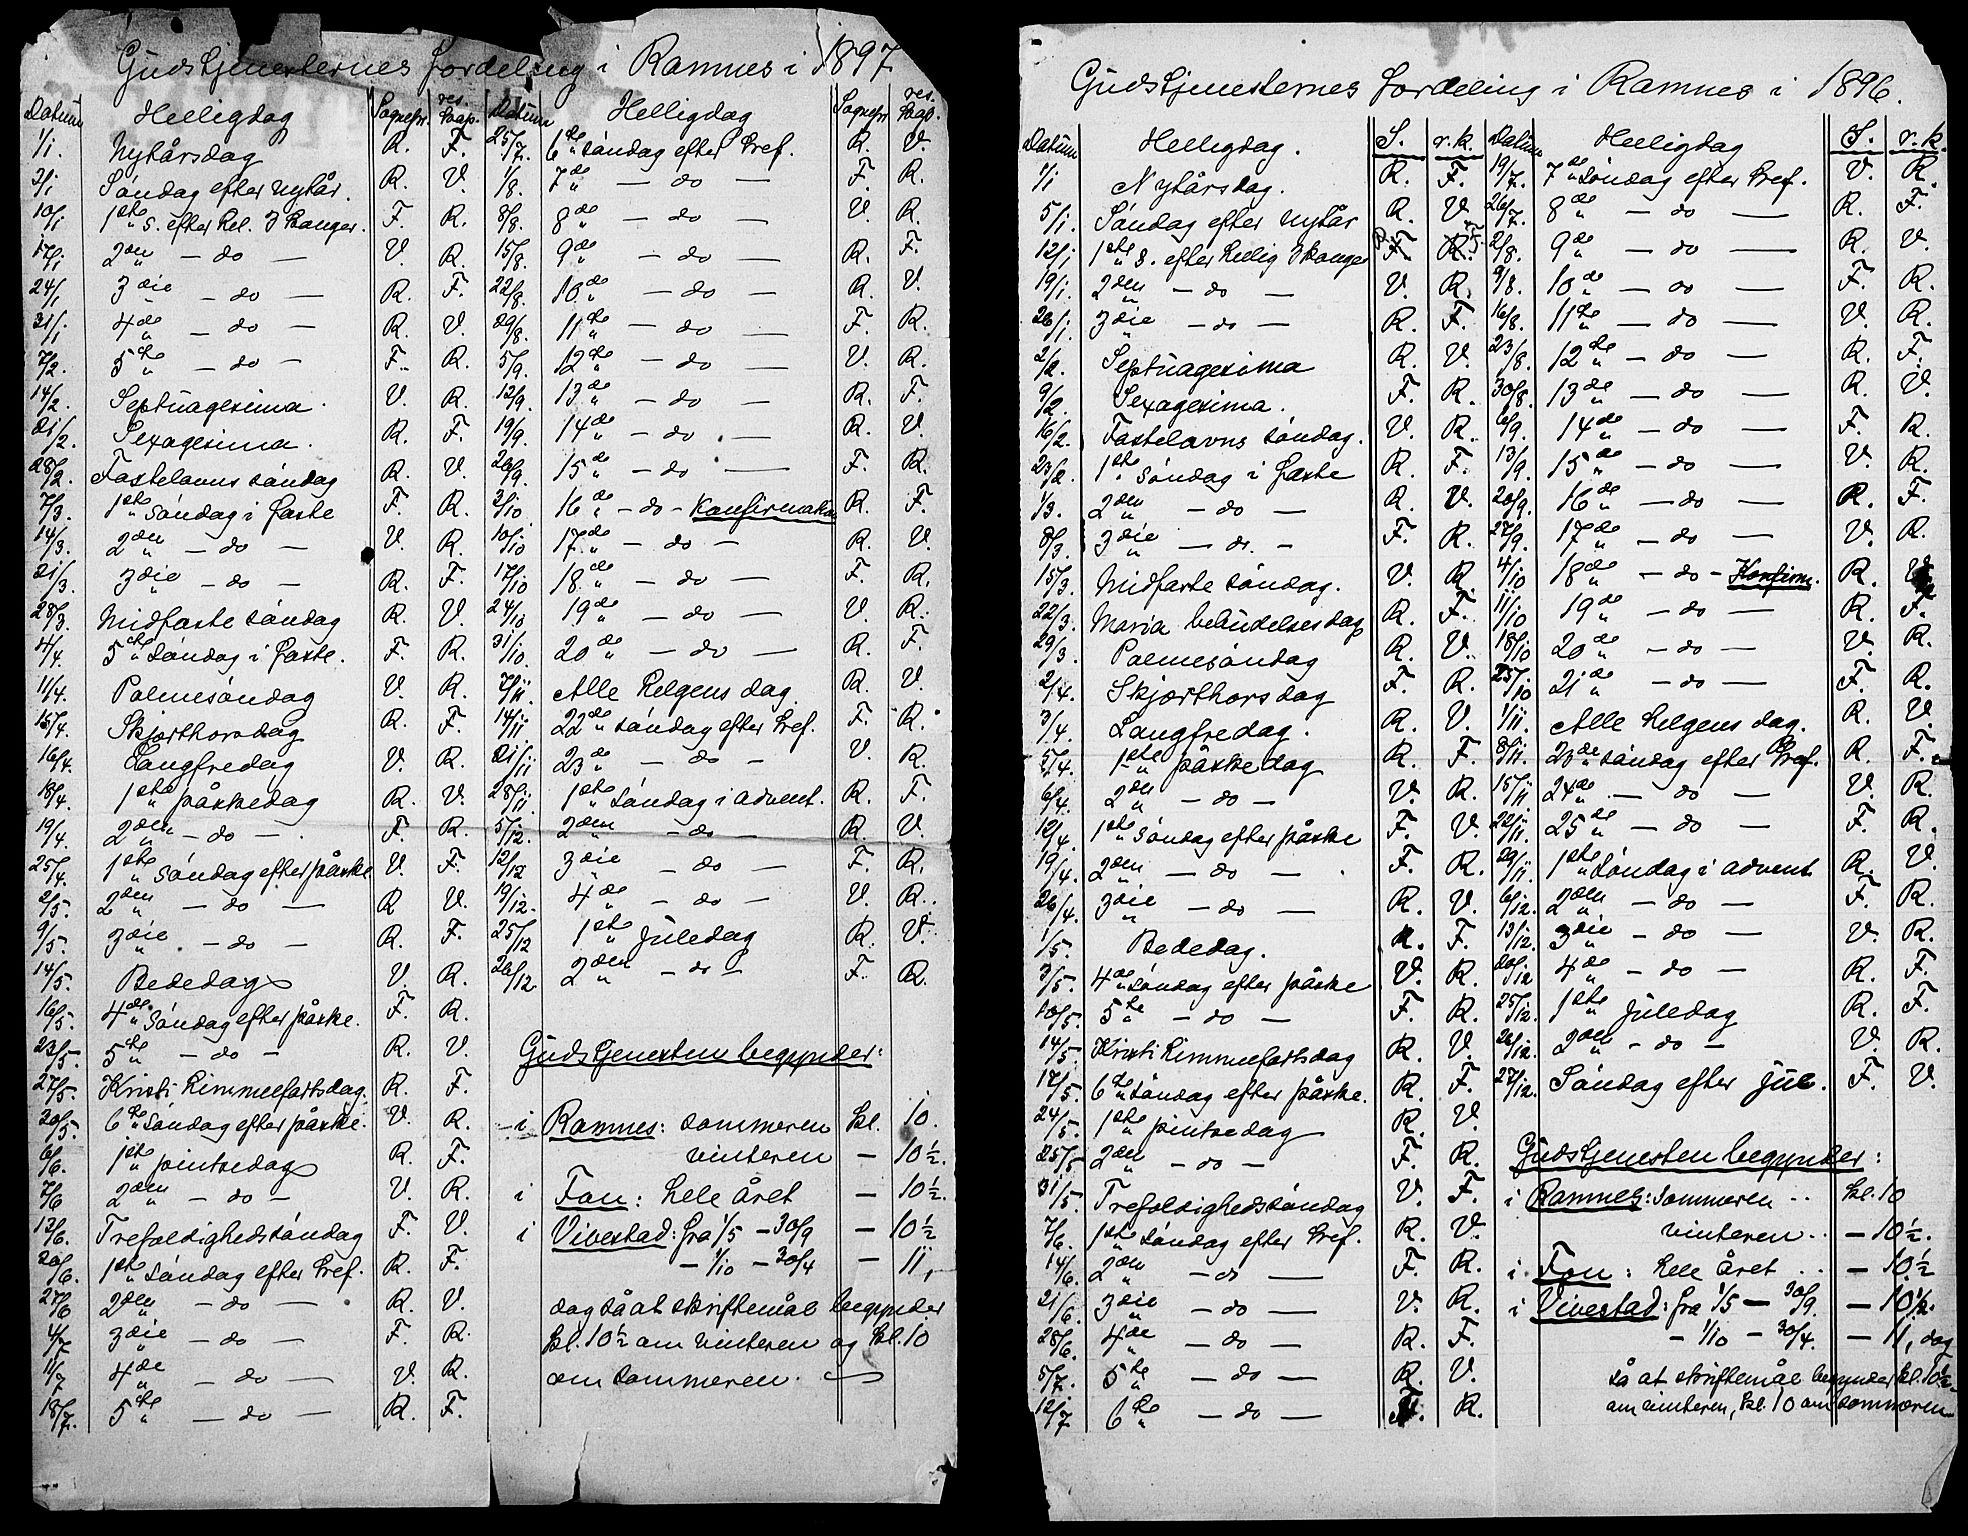 Gudstjenesternes fordeling i Ramnes i 1897
Datum Helligdag Sognepr. res. kap.
1/1 Nytårsdag R. F.
3/1 Søndag efter nytår. R. V.
10/1 1ste S. efter hel. 3 konger. F. R.
17/1 2den — do — V. R.
24/1 3die — do — R. F.
31/1 4de — do — R. V.
7/2. 5te — do — F. R.
14/2. Septuagesima. V. R.
21/2. Sexagesima. R. F.
28/2 Fastelavns søndag R. V.
7/3. 1ste søndag i faste F. R.
14/3. 2den — do — V. R.
21/3. 3die — do — R. F.
28/3. Midfaste søndag R. V.
4/4. 5te søndag i faste. F. R.
11/4. Palmesøndag V. R.
15/4. Skjærthorsdag R. F.
16/4. Langfredag V. R.
18/4. 1ste påskedag R. V.
19/4. 2den — do — F. R.
25/4. 1ste søndag efter påske V. F.
2/5. 2den — do — R V.
9/5. 3die — do — R. F.
14/5. Bededag V. R.
16/5. 4de søndag efter påske. F. R.
23/5. 5te — do — R. V.
27/5. Kristi himmelfartsdag. R. F.
30/5. 6te søndag efter påske. V. R.
6/6. 1ste pintsedag R. F.
7/6 2den — do — V. R.
13/6. Trefoldighedssøndag F. V.
20/6. 1ste søndag efter tref. R. F.
27/6 2den — do — R. V.
4/7 3die — do — F. R.
11/7 4de — do — V. R.
18/7. 5te — do — R. F.
Datum Helligdag Sognepr res. kap.
25/7. 6te søndag efter tref. R. V.
1/8. 7de — do — F. R.
8/8. 8de — do — V. R.
15/8. 9de — do — R. F.
22/8. 10de — do — R. V.
29/8. 11te — do — F. R.
5/9. 12te — do — V. R.
12/9. 13de — do — R. F.
19/9. 14de — do — R. V.
26/9 15de — do — F. R.
3/10 16de — do — Konfirmation R. F.
10/10 17de — do — R. V.
17/10 18de — do — F. R.
24/10 19de — do — V. R.
31/10. 20de — do — R. F.
7/11 Alle helgens dag R. V.
14/11 22de søndag efter tref. F. R.
21/11 23de — do — V. R.
28/11 1ste søndag i advent. R. F.
5/12. 2den — do — R. V.
12/12 3die — do — F. R.
19/12. 4de — do — V. R.
25/12 1ste juledag R. V.
26/12 2den — do — F. R.
Gudstjenesten begynder:
i Ramnes: sommeren kl. 10.
vinteren — 10½.
i Fon: hele året — 10½.
i Vivestad: fra 1/5 — 30/9 — 10½
— 1/10 — 30/4 — 11,
dog så at skriftemål begynder
kl. 10½ om vinteren og kl. 10
om sommeren.
Gudstjenesternes fordeling i Ramnes i 1896.
Datum Helligdag. S. r. k.
1/1 Nytårsdag. R. F.
5/1 Søndag efter nytår R. V.
12/1 1ste S. efter hellig 3 konger
19/1. 2den — do — V. R.
26/1. 3die — do — R. F.
2/2. Septuagesima R. V.
9/2. Sexagesima. F. R.
16/2. Fastelavns søndag. V. R.
23/2. 1ste søndag i faste R. F.
1/3. 2den — do — R. V.
8/3. 3die — do — F. R.
15/3. Midfaste søndag. V. R.
22/3. Maria bebudelses dag R. F.
29/3. Palmesøndag R. V.
2/4. Skjærthorsdag F. R.
3/4. Langfredag. R. V.
5/4. 1ste påskedag R. F.
6/4. 2den — do — V. R.
12/4. 1ste søndag efter påske F. V.
19/4. 2den — do — F. R.
26/4. 3die — do — R. V.
1/5. Bededag. R. F.
3/5. 4de søndag efter påske V. R.
10/5. 5te — do — F. R.
14/5. Kristi himmelfartsdag R. V.
17/5. 6te søndag efter påske. R. F.
24/5. 1ste pintsedag R. V.
25/5 2den — do — F. R.
31/5. Trefoldighedssøndag V. F.
7/6. 1ste søndag efter tref. R. V.
14/6. 2den — do — F. R.
21/6. 3die — do — V. R.
28/6. 4de — do — R. F.
5/7. 5te — do — R. V.
12/7 6te — do — F. R.
Datum Helligdag S. r. k.
19/7. 7de søndag efter tref. V. R.
26/7. 8de — do — R. F.
2/8. 9de — do — R. V.
9/8. 10de — do — F. R.
16/8. 11te — do — V. R.
23/8. 12te — do — R. F.
30/8. 13de — do — R. V.
6/9. 14de — do — F. R.
13/9 15de — do — V. R.
20/9. 16de — do — R. F.
27/9. 17de — do — V. R.
4/10 18de — do — Konfirm. R. V.
11/10 19de — do — R. F.
18/10 20de — do — V. R.
25/10 21de — do — F. R.
1/11 Alle helgens dag. R. V.
8/11. 23de søndag efter tref. R. F.
15/11 24de — do — V. R.
22/11. 25de — do — F. R.
29/11. 1ste søndag i advent R. V.
6/12. 2den — do — F. R.
13/12. 3die — do — V. R.
20/12 4de — do — R. F.
25/12. 1ste juledag R. F.
26/12. 2den — do — V. R.
27/12. Søndag efter jul. F. V.
Gudstjenesten begynder:
i Ramnes: sommeren .. kl. 10
vinteren .. — 10½.
i Fon: hele året .. — 10½
i Vivestad: fra 1/5 — 30/9. — 10½.
— 1/10 — 30/4. — 11, dog
så at skriftemål begynder kl. 10½
om vinteren, kl. 10 om sommeren